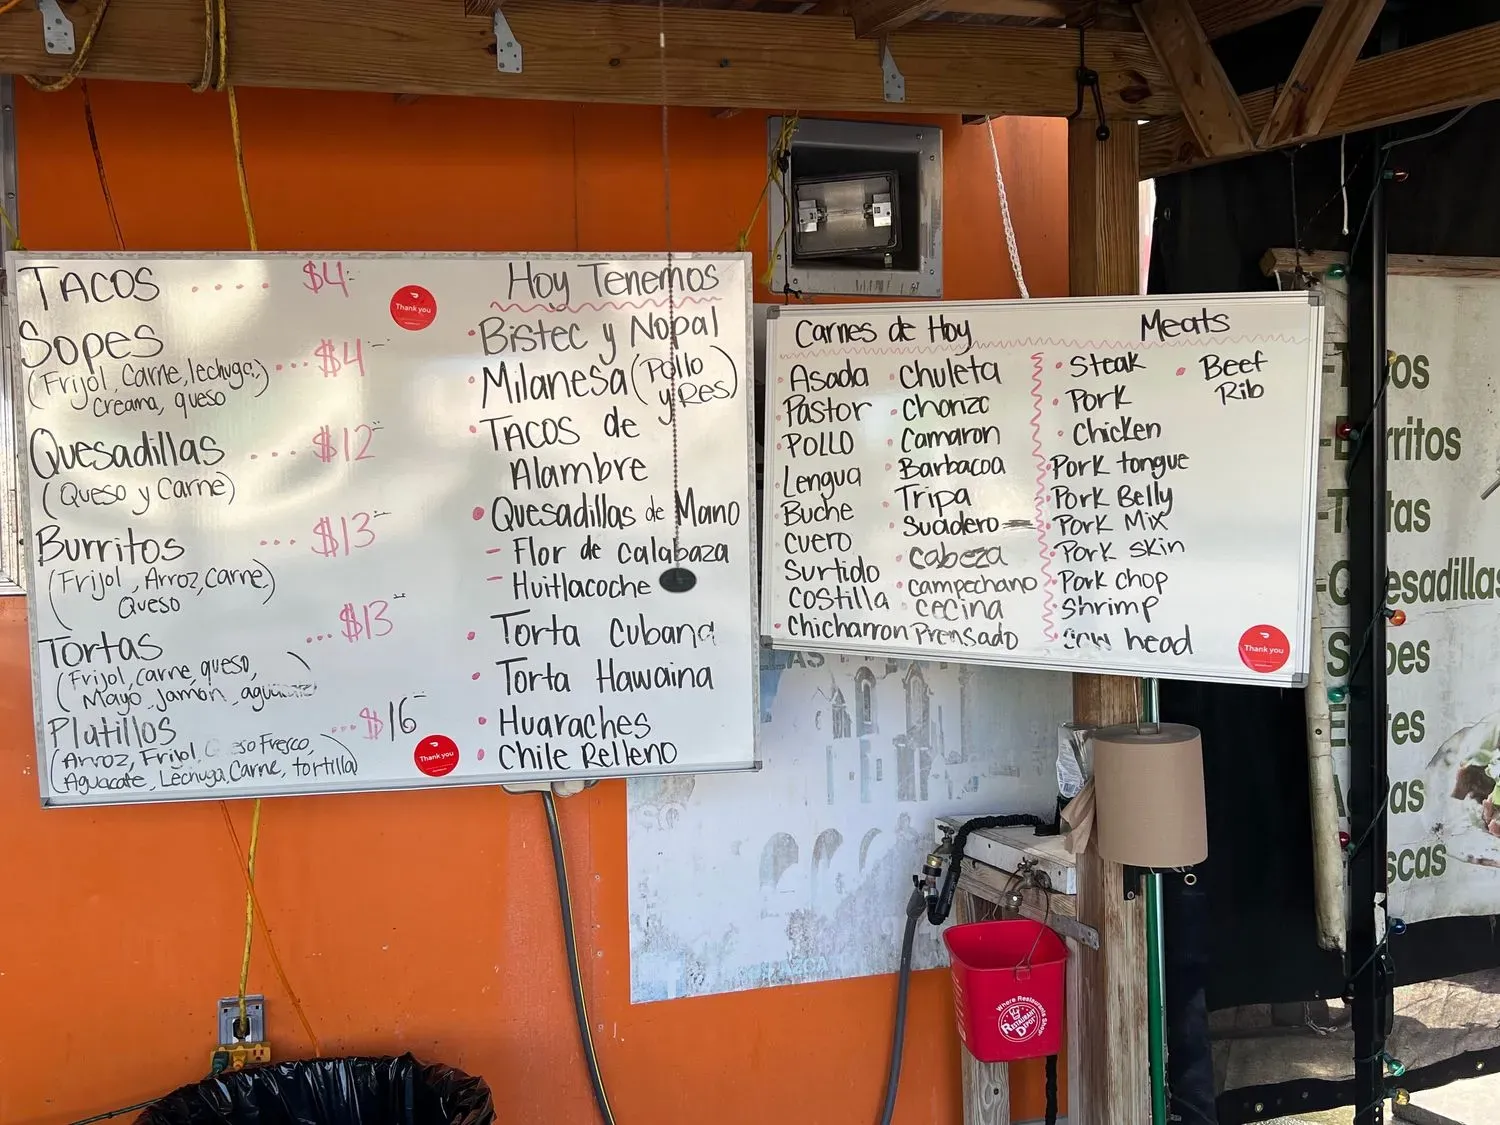 TACOS ..... $4
Sopes ... $4
(Frijol, Carne, lechuga,
Creama, queso)
Quesadillas .... $12
(Queso y Carne)
Burritos ... $13
(Frijol, Arroz, Carne)
Queso
Tortas ... $13
(Frijol, carne, queso,
Mayo, jamon, aguacate)
Platillos ... $16
(Arroz, Frijol, Fresco,
Aguacate, Lechuga, Carne, tortilla)
Thank you
Thank you
Hoy Tenemos
Bistec y Nopal
Milanesa (Pollo
y Res)
TACOS de
Alambre
Quesadillas de Mano
- Flor de calabaza
- Huitlacoche
Torta Cubana
Torta Hawaina
Huaraches
Chile Relleno
Carnes de Hoy
Asada
Pastor
Pollo
Lengua
Buche
Cuero
Surtido
Costilla
Chicharron
Chuleta
Chorizo
Camaron
Barbacoa
Tripa
Suadero
Cabeza
Campechano
Cecina
Prensado
Meats
Steak
Pork
Chicken
Pork tongue
Pork Belly
Pork Mix
Pork skin
Pork chop
Shrimp
cow head
Beef
Rib
Thank you
Where Restaurants Shop
Restaurant Depot